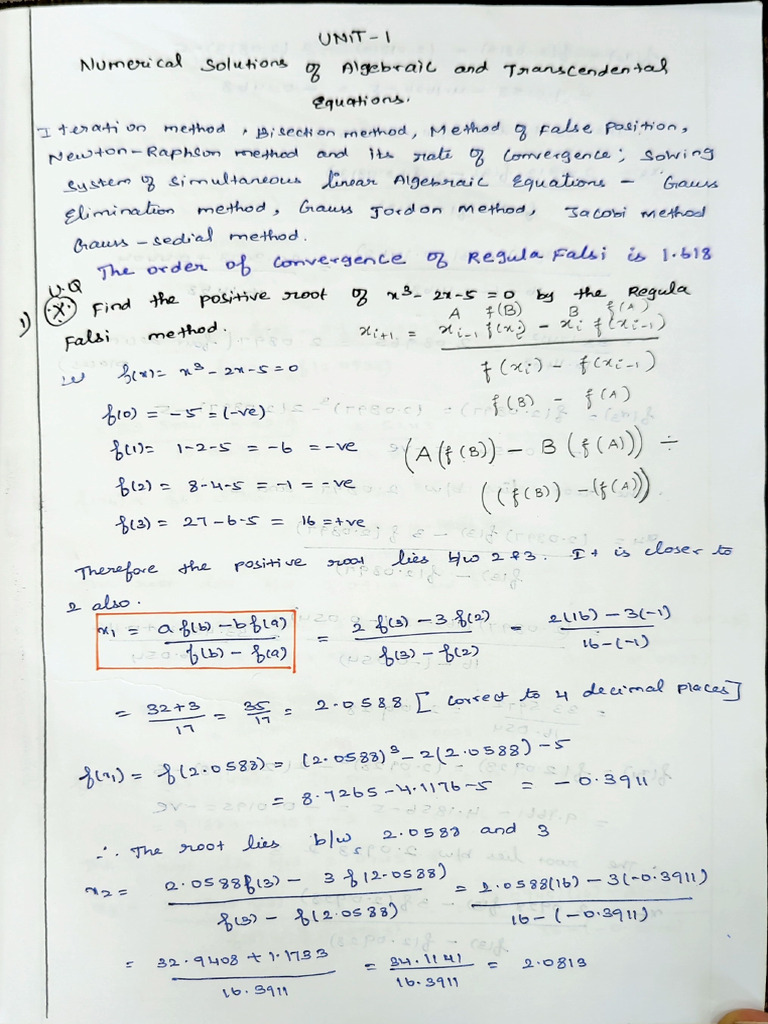 UNIT-1
Numerical Solutions of Algebraic and Transcendental
Equations.
Iteration method, Bisection method, Method of False Position,
Newton-Raphson method and its rate of Convergence; Solving
System of Simultaneous linear Algebraic Equations - Gauss
Elimination method, Gauss Jordon Method, Jacobi Method
Gauss-Sedial method.
The order of convergence of Regula Falsi is 1.618
U.Q
1) (X) Find the positive root of x³-2x-5=0 by the Regula
Falsi method.
A f(B) B f(A)
x_{i+1} = x_{i-1} f(x_i) - x_i f(x_{i-1})
f(x_i) - f(x_{i-1})
f(B) - f(A)
let f(x) = x³-2x-5=0
f(0) = -5 = (-ve)
f(1) = 1-2-5 = -6 = -ve
(A(f(B)) - B(f(A))) ÷
f(2) = 8-4-5 = -1 = -ve
((f(B)) - (f(A))).
f(3) = 27-6-5 = 16 = +ve
Therefore the positive root lies b/w 2 & 3. It is closer to
2 also.
x₁ = a f(b) - b f(a) / f(b) - f(a) = 2 f(3) - 3 f(2) / f(3) - f(2) = 2(16) - 3(-1) / 16-(-1)
= 32+3 / 17 = 35/17 = 2.0588 [correct to 4 decimal places]
f(x₁) = f(2.0588) = (2.0588)³-2(2.0588)-5
= 8.7265-4.1176-5 = -0.3911
∴ The root lies b/w 2.0588 and 3
x₂ = 2.0588f(3) - 3 f(2.0588) / f(3) - f(2.0588) = 2.0588(16) - 3(-0.3911) / 16-(-0.3911)
= 32.9408 + 1.1733 / 16.3911 = 34.1141 / 16.3911 = 2.0813